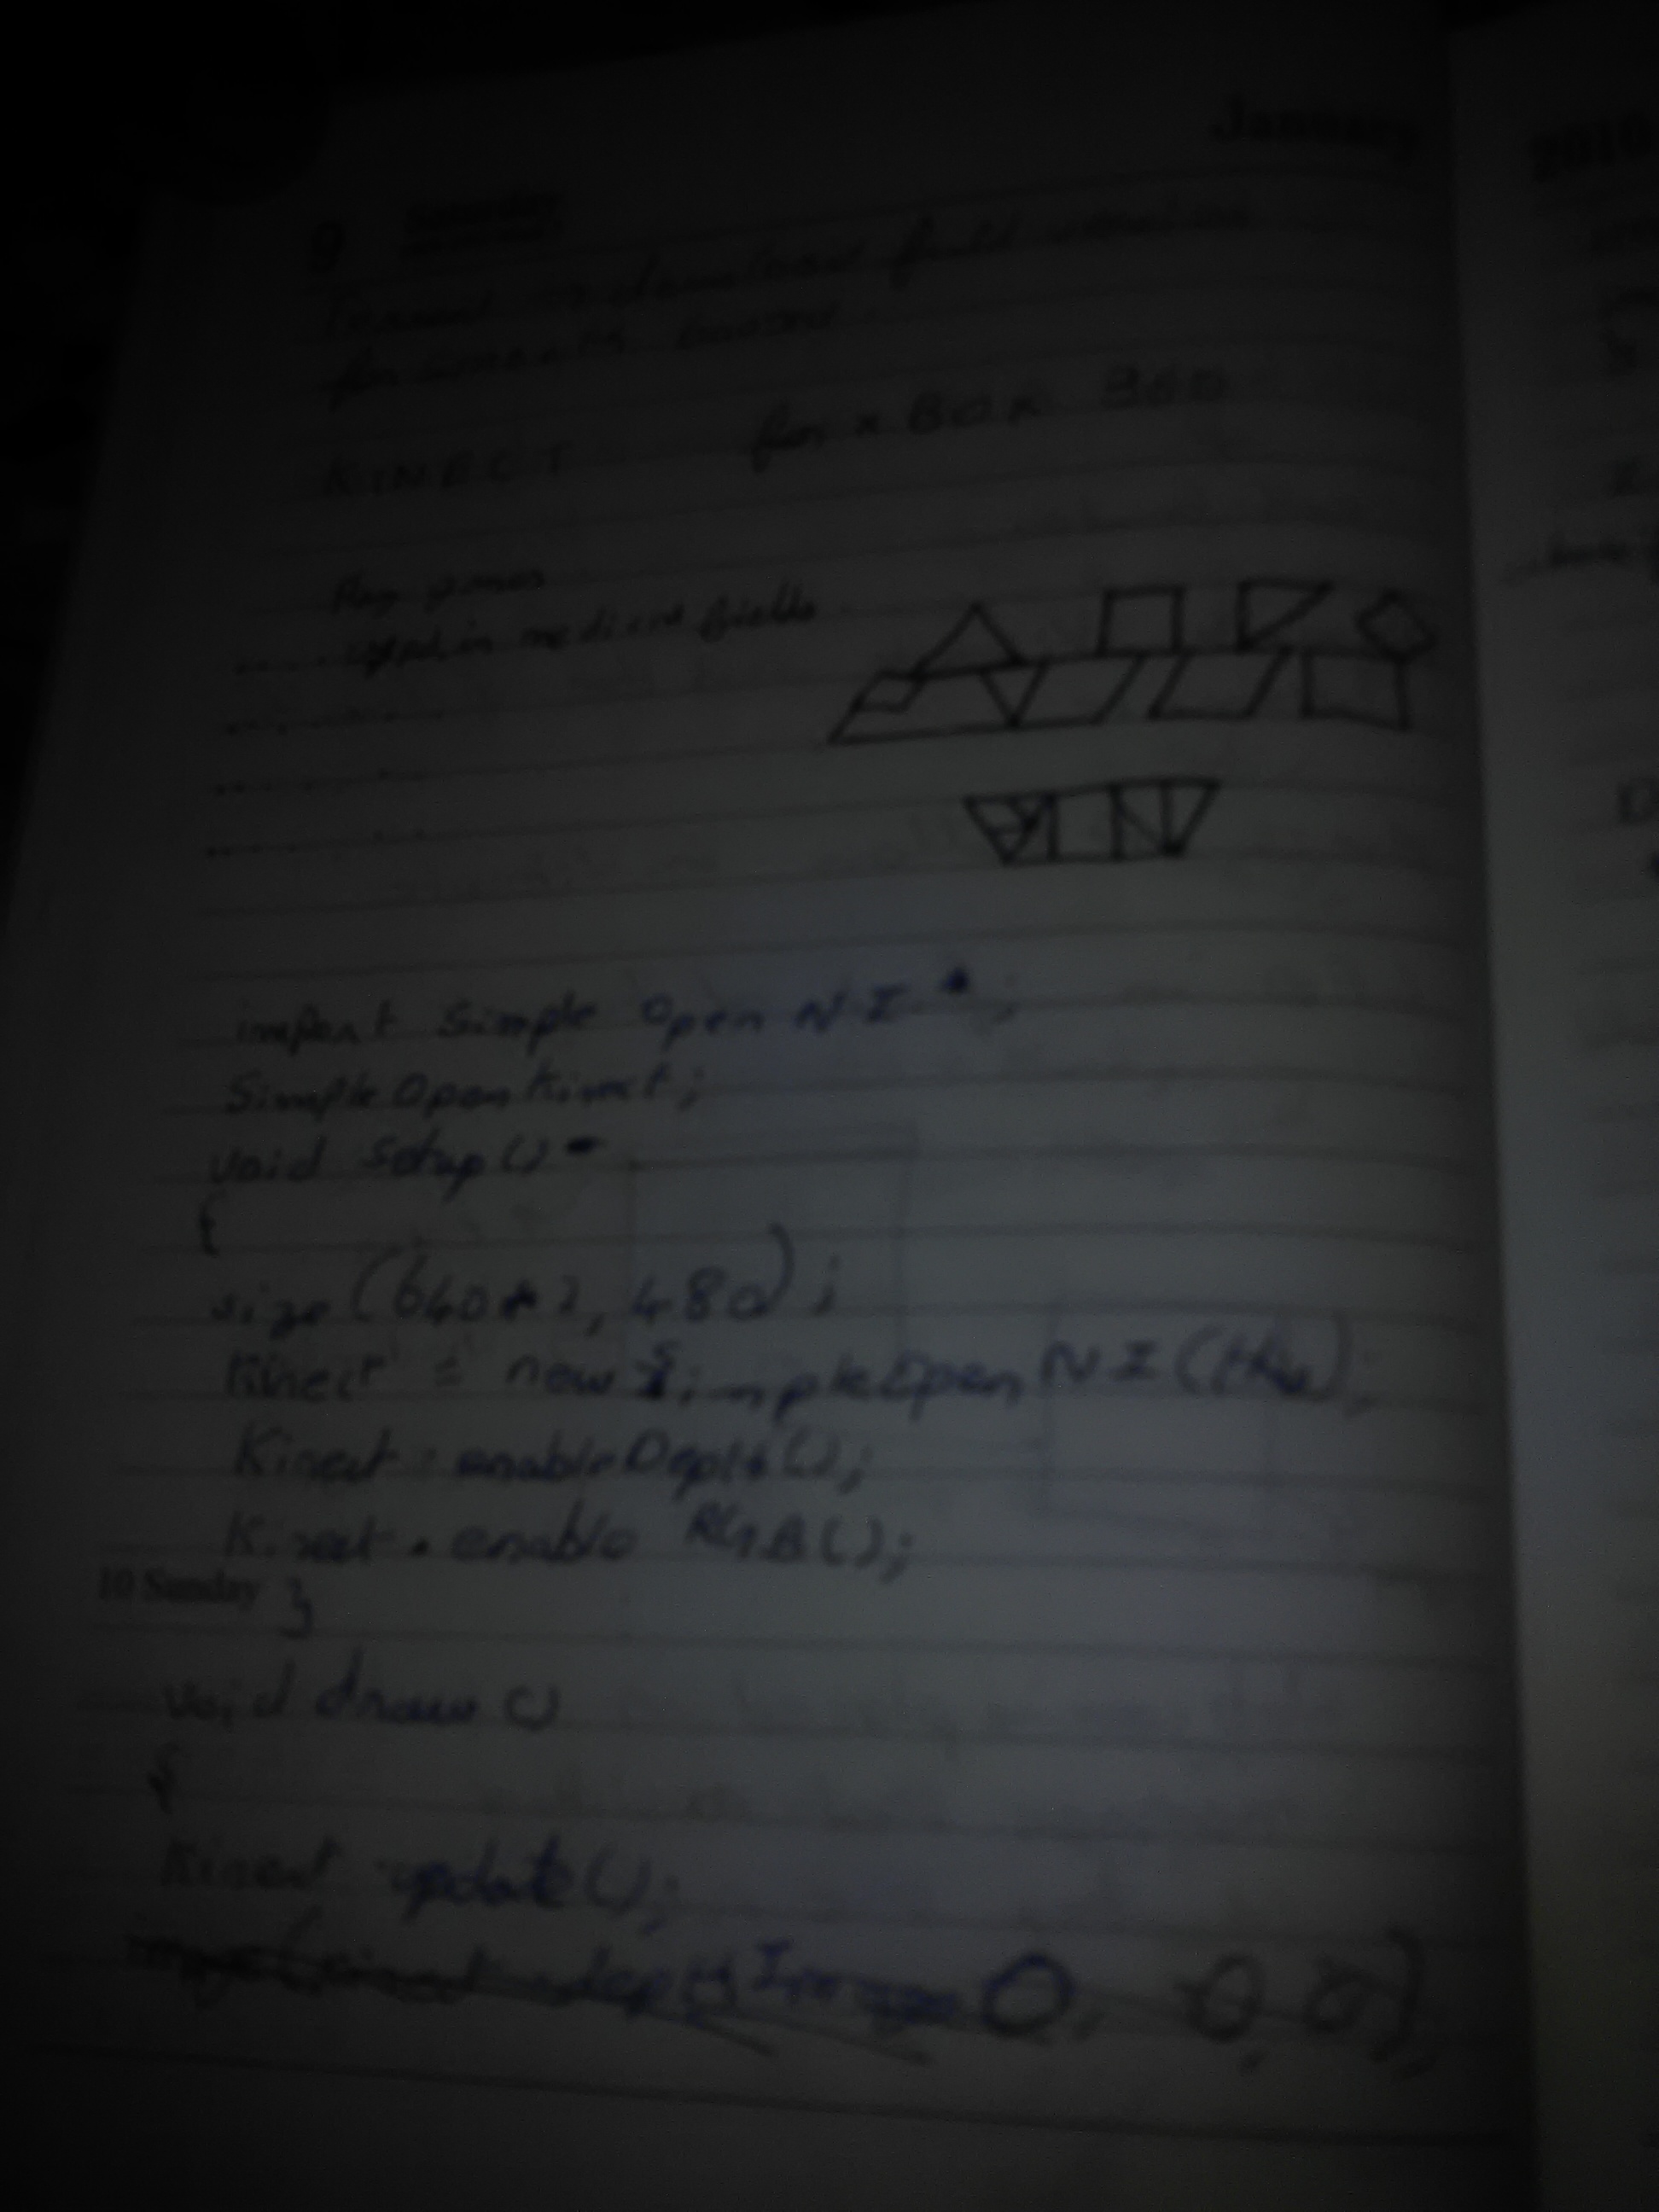 January
2010
9 Saturday
for
KINECT for XBOX 360
Play games
used in medical fields
import Simple Open NI *;
Simple Open Kinect;
void setup()
{
size (640*2, 480);
Kinect = new SimpleOpen NI (this);
Kinect . enableDepth();
Kinect . enable RGB();
10 Sunday }
void draw ()
{
Kinect . update();
depth Image 0, 0